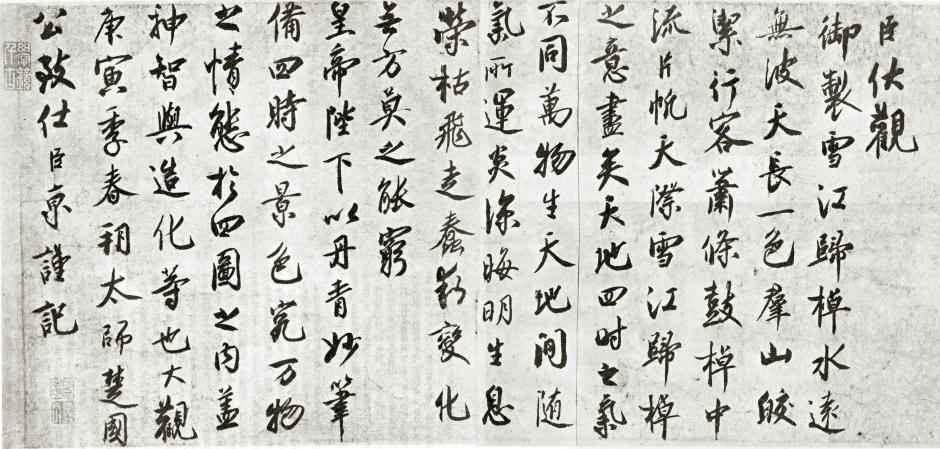 臣伏觀
御製雪江歸棹水遠
無波天長一色群山皎
潔行客蕭條鼓棹中
流片帆天際雪江歸棹
之意盡矣天地四时之氣
不同萬物生天地間随
氣所運炎凉晦明生息
榮枯飛走蠢動變化
無方莫之能窮
皇帝陛下以丹青妙筆
備四時之景色究万物
之情態於四圖之内盖
神智與造化等也大觀
庚寅季春朔太師楚國
公致仕臣京謹記